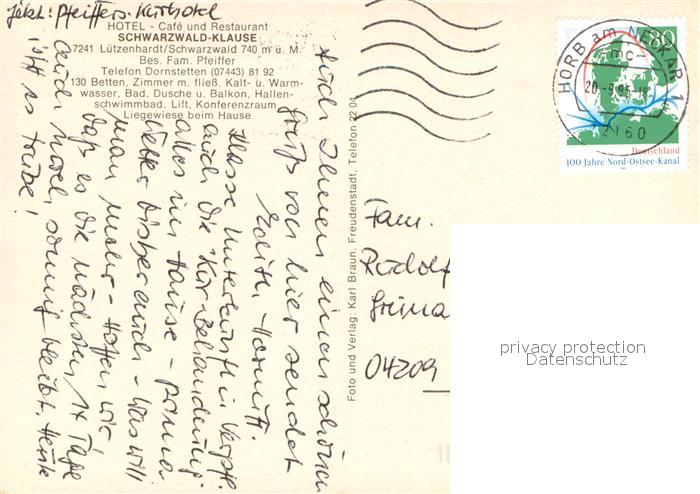 jetzt: Pfeiffers Kurhotel
HOTEL - Café und Restaurant
SCHWARZWALD-KLAUSE
7241 Lützenhardt/Schwarzwald 740 m ü. M.
Bes. Fam. Pfeiffer
Telefon Dornstetten (07443) 81 92
130 Betten, Zimmer m. fließ. Kalt- u. Warm-
wasser, Bad, Dusche u. Balkon, Hallen-
schwimmbad, Lift, Konferenzraum
Liegewiese beim Hause
Auch Ihnen einen schönen
Gruß von hier sendet
Edith
Klasse Unterkunft u. Verpfl.
auch die Kur-Behandlung
alles im Hause - prima
Wetter bisher auch - was will
man mehr - Hoffen wir
daß es die nächsten 14 Tage
auch noch sonnig bleibt. Heute
ist es trübe!
Foto und Verlag: Karl Braun, Freudenstadt, Telefon 22 04
HORB am NECKAR 1
mc
20.-9.95-18
72160
80
Deutschland
100 Jahre Nord-Ostsee-Kanal
Fam.
Rudolf
Grima
04209
privacy protection
Datenschutz